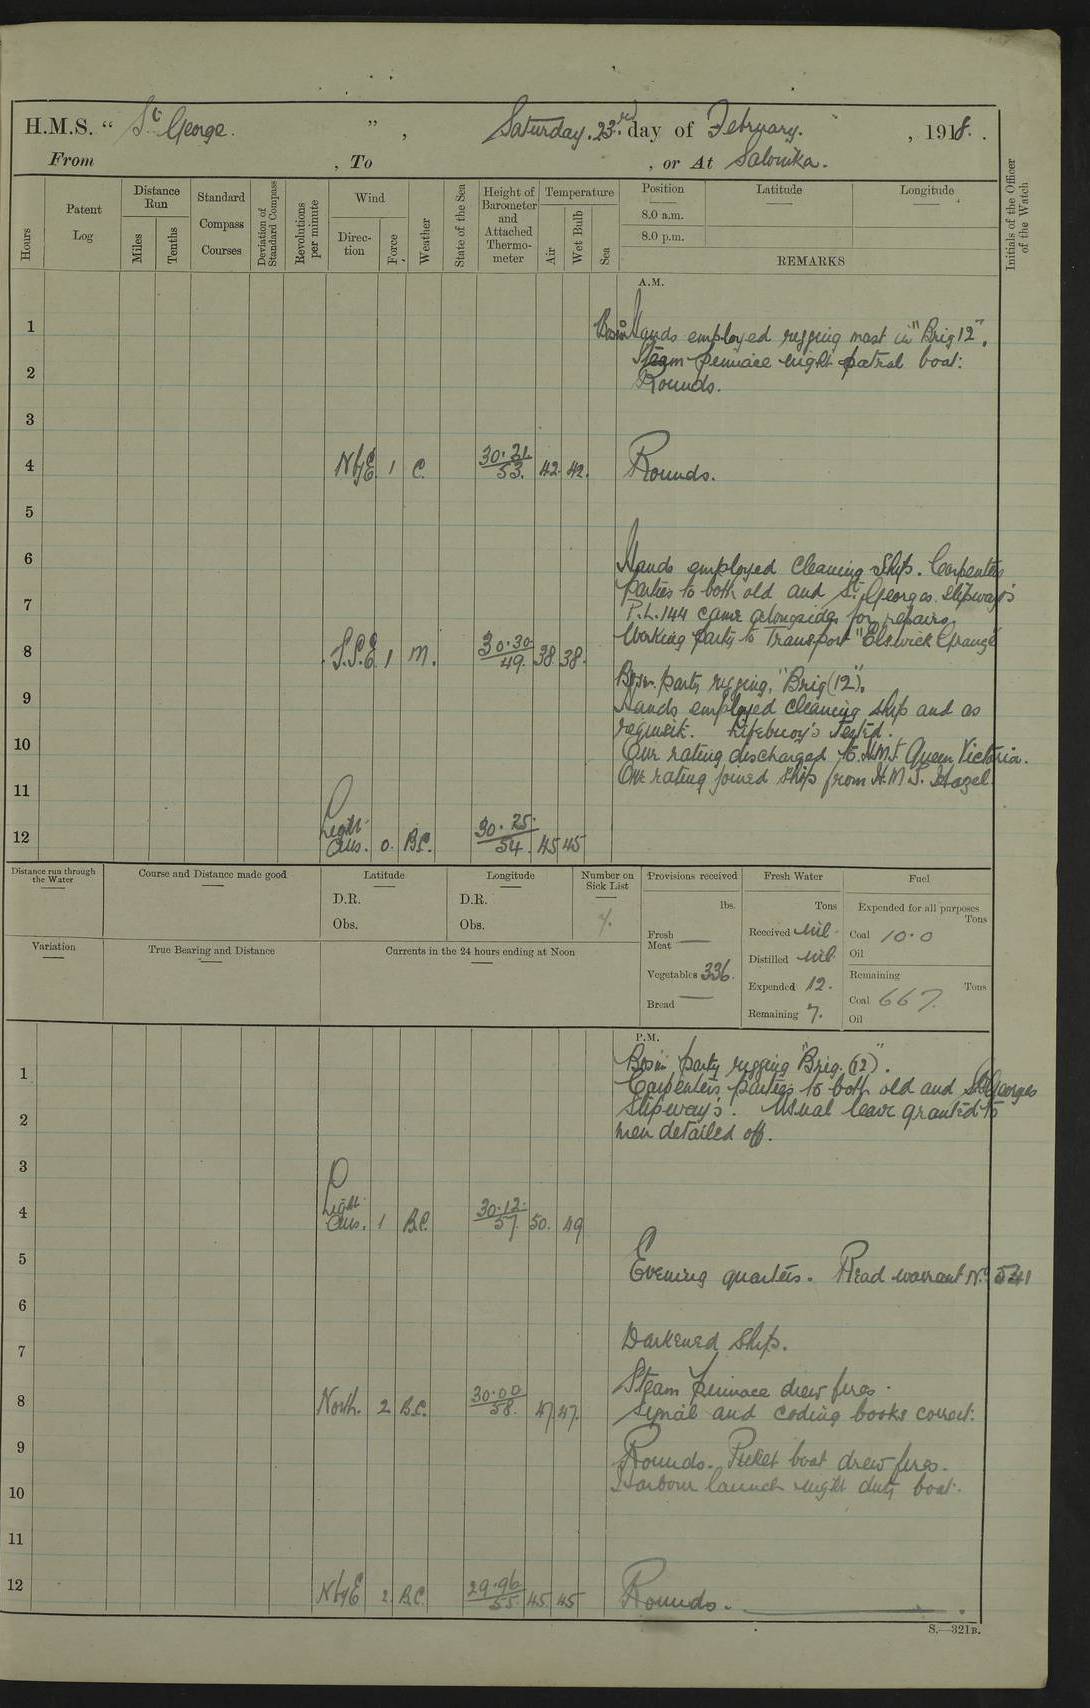 H.M.S. " St George. ", Saturday. 23rd day of February. , 1918.
From , To , or At Salonika.
Hours
Patent Log
Distance Run
Miles
Tenths
Standard Compass Courses
Deviation of Standard Compass
Revolutions per minute
Wind
Direction
Force
Weather
State of the Sea
Height of Barometer and Attached Thermometer
Temperature
Air
Wet Bulb
Sea
Position
8.0 a.m.
8.0 p.m.
Latitude
Longitude
REMARKS
Initials of the Officer of the Watch
A.M.
1
Bosun Hands employed rigging mast in "Brig 12".
2
Steam pinnace night patrol boat.
Rounds.
3
4 N by E 1 C. 30.21/53. 42. 42. Rounds.
5
6
Hands employed cleaning ship. Carpenters
parties to both old and St. Georges slipways's
7
P.L. 144 came alongside for repairs
Working party to Transport "Elswick Grange"
8 S.S.E 1 M. 30.30/49. 38 38.
Bosn. party rigging, "Brig (12").
9
Hands employed cleaning ship and as
requisit. Lifebuoy's Tested.
10
One rating discharged to H.M.S. Queen Victoria.
One rating joined ship from H.M.S. Hazel
11
12 Light airs. 0. B.C. 30.25/54. 45 45
Distance run through the Water
Course and Distance made good
Latitude
D.R.
Obs.
Longitude
D.R.
Obs.
Number on Sick List
4.
Provisions received
lbs.
Fresh Meat —
Vegetables 336.
Bread —
Fresh Water
Tons
Received Nil
Distilled Nil
Expended 12.
Remaining 7.
Fuel
Expended for all purposes
Tons
Coal 10.0
Oil
Remaining
Tons
Coal 667.
Oil
Variation
True Bearing and Distance
Currents in the 24 hours ending at Noon
P.M.
Bosun party rigging "Brig. (12)".
1
Carpenters parties to both old and St Georges
Slipway's. Usual leave granted to
2
men detailed off.
3
4 Light airs. 1 B.C. 30.12/57. 50. 49
5
Evening quarters. Read warrant No. 541
6
Darkened ship.
7
Steam pinnace drew fires.
8 North. 2 B.C. 30.00/58. 47 47. Signal and coding books correct.
9
Rounds. Picket boat drew fires.
Harbour launch night duty boat.
10
11
12 N by E 2 B.C. 29.96/55. 45 45 Rounds.
S.—321B.